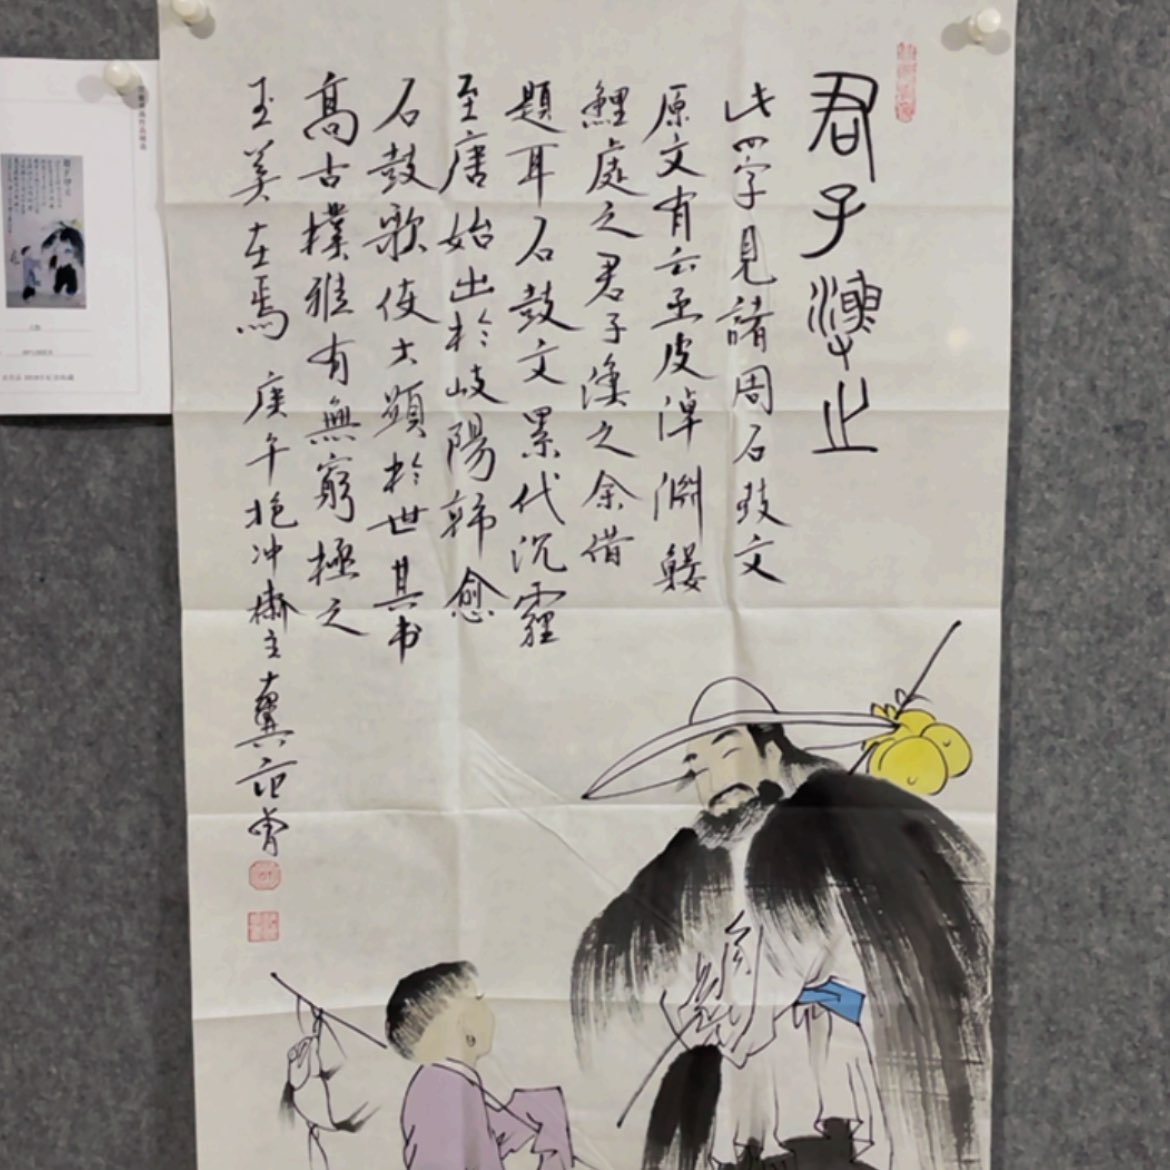 君子漁之
此四字見諸周石鼓文
原文有云丞皮淖淵鰋
鯉處之君子漁之余借
題耳石鼓文累代沉霾
至唐始出於岐陽韓愈
石鼓歌使大顯於世其书
高古樸雅有無窮極之
至美在焉 庚午抱冲齋主十翼范曾